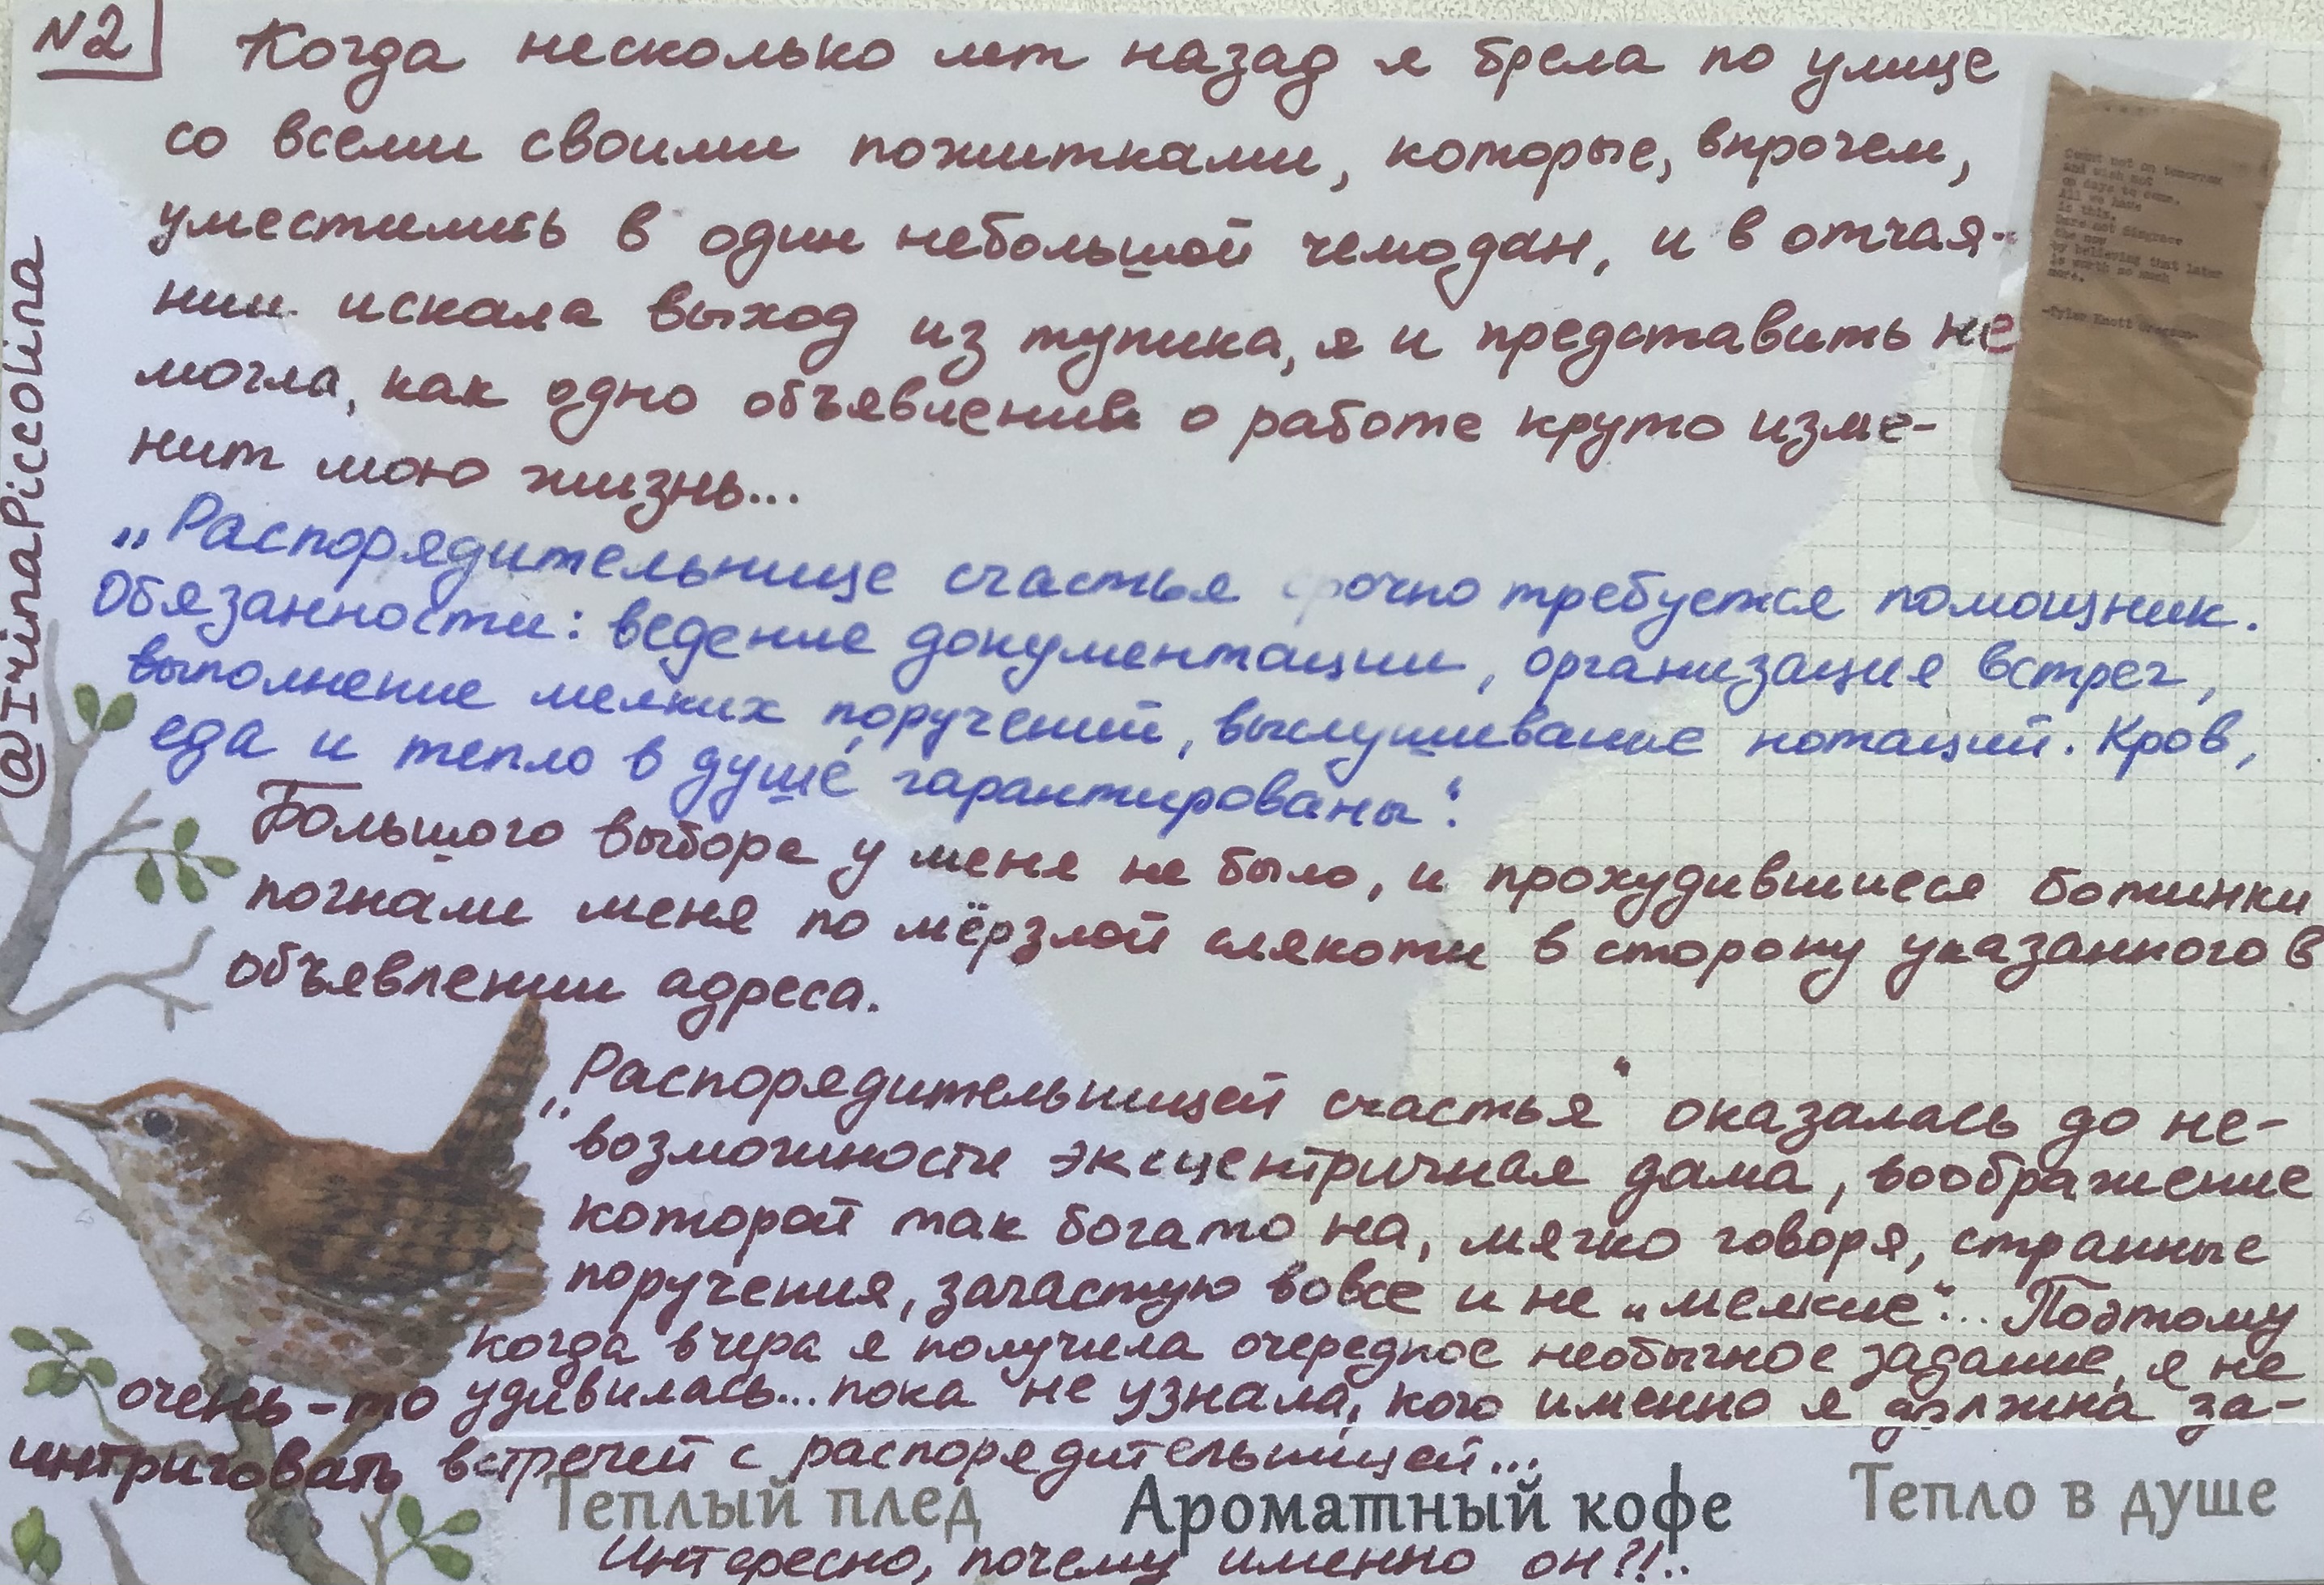 №2
Когда несколько лет назад я брела по улице
со всеми своими пожитками, которые, впрочем,
уместились в один небольшой чемодан, и в отчая-
нии искала выход из тупика, я и представить не
могла, как одно объявление о работе круто изме-
нит мою жизнь...
„Распорядительнице счастья срочно требуется помощник.
Обязанности: ведение документации, организация встреч,
выполнение мелких поручений, выслушивание нотаций. Кров,
еда и тепло в душе гарантированы“.
Большого выбора у меня не было, и прохудившиеся ботинки
погнали меня по мёрзлой слякоти в сторону указанного в
объявлении адреса.
„Распорядительницей счастья“ оказалась до не-
возможности эксцентричная дама, воображение
которой так богато на, мягко говоря, странные
поручения, зачастую вовсе и не „мелкие“... Поэтому
когда вчера я получила очередное необычное задание, я не
очень-то удивилась... пока не узнала, кого именно я должна за-
интриговать встречей с распорядительницей...
Теплый плед Ароматный кофе Тепло в душе
Интересно, почему именно он?!..
@IrinaPiccolina
Count not on tomorrow
and wish not
on days to come.
All we have
is this.
Dare not disgrace
the now
by believing that later
is worth so much
more.
-Tyler Knott Gregson-